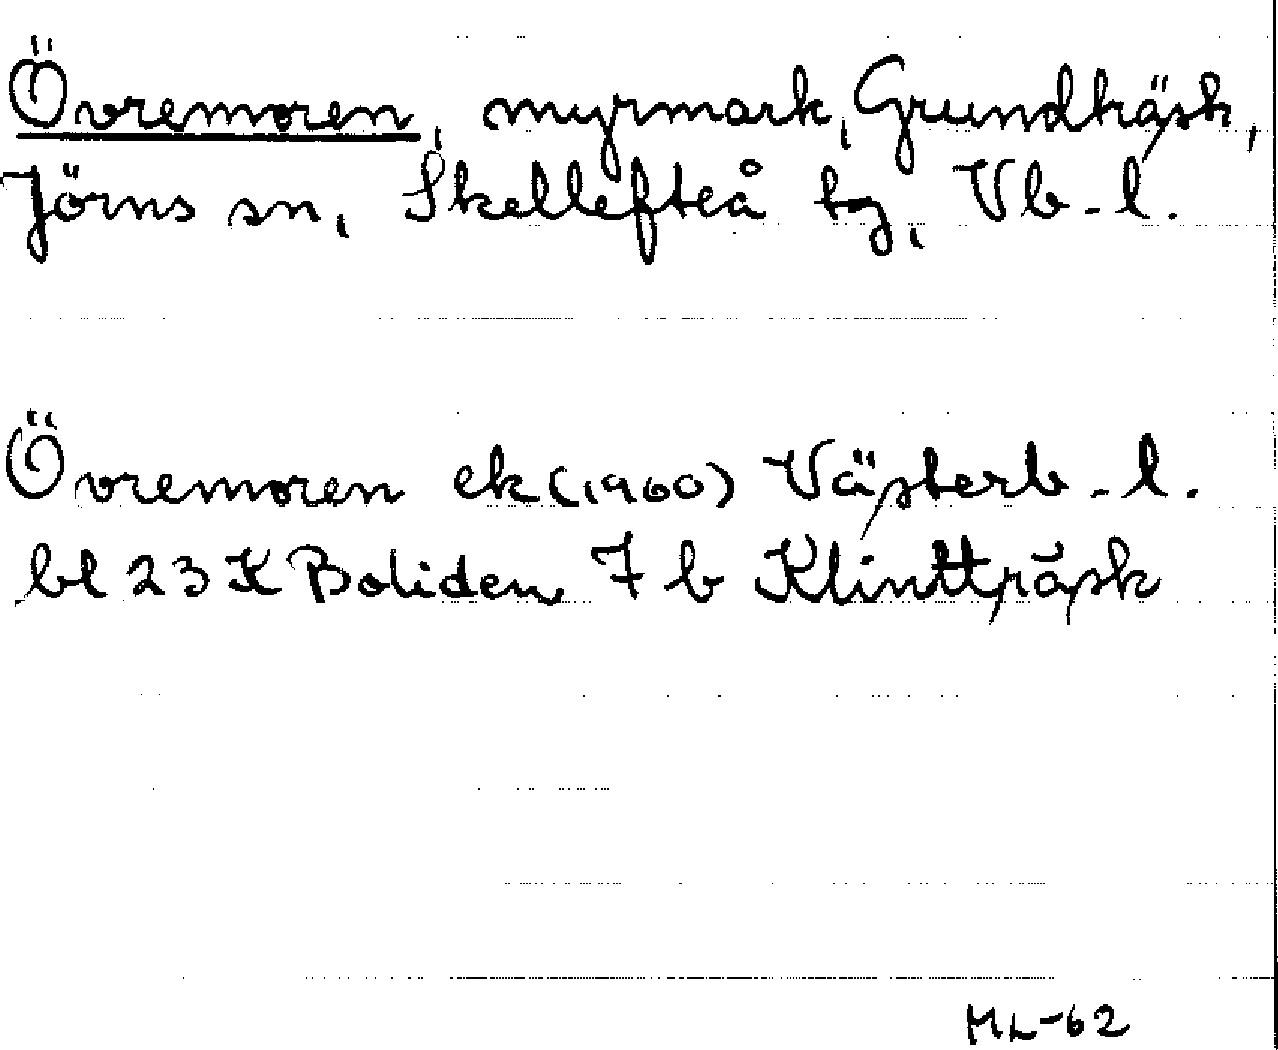 Övremoren, myrmark, Grundträsk,
Jörns sn, Skellefteå tg, Vb-l.
Övremoren ek (1960) Västerb-l.
bl 23 K Boliden 7 b Klintträsk
ML-62